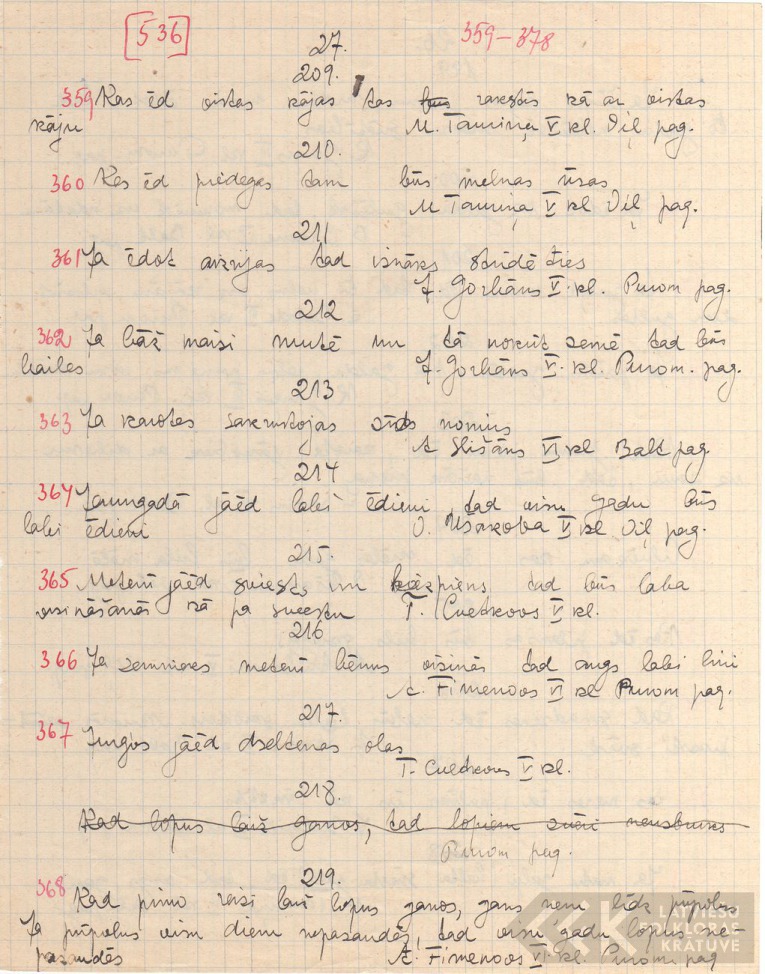 [536] 359-378
27.
209.
359 Kas ēd vistas kājas tas rakstīs kā ar vistas
kāju M. Tauriņa V kl. Viļ pag.
210.
360 Kas ēd piedegas tam būs melnas ūsas
M Tauriņa V kl Viļ pag.
211
361 Ja ēdot aizrijas tad iznāks strīdēties
J. Gorbāns V. kl. Purom pag.
212
362 Ja bāž maizi mutē un tā nokrīt zemē tad būs
bailes J. Gorbāns V. kl. Purom. pag.
213
363 Ja karotes sakrustojas nomirs
A Slišāns VI kl Balt pag.
214
364 Jaungadā jāēd labi ēdieni, tad visu gadu būs
labi ēdieni O. Ušakova V kl Viļ pag.
215.
365 Metenī jāēd sviests un piens, tad būs laba
vizināšanās kā pa sviestu T. Cvetkovs V kl.
216
366 Ja zemnieks metenī bērnus vizinās tad augs labi lini
A. Fimenovs VI kl Purom pag.
217.
367 Jurģos jāēd dzeltenas olas
T. Cvetkovs V kl.
218.
Kad lopus laiž ganos, tad lopiem
Purom pag.
219.
368 Kad pirmo reizi laiž lopus ganos, gans ņem līdz pūpolu
Ja pūpolus visu dienu nepazaudēs, tad visu gadu lopus ne-
pazaudēs A. Fimenovs VI kl. Purom pag
LATVIEŠU
FOLKLORAS
KRĀTUVE